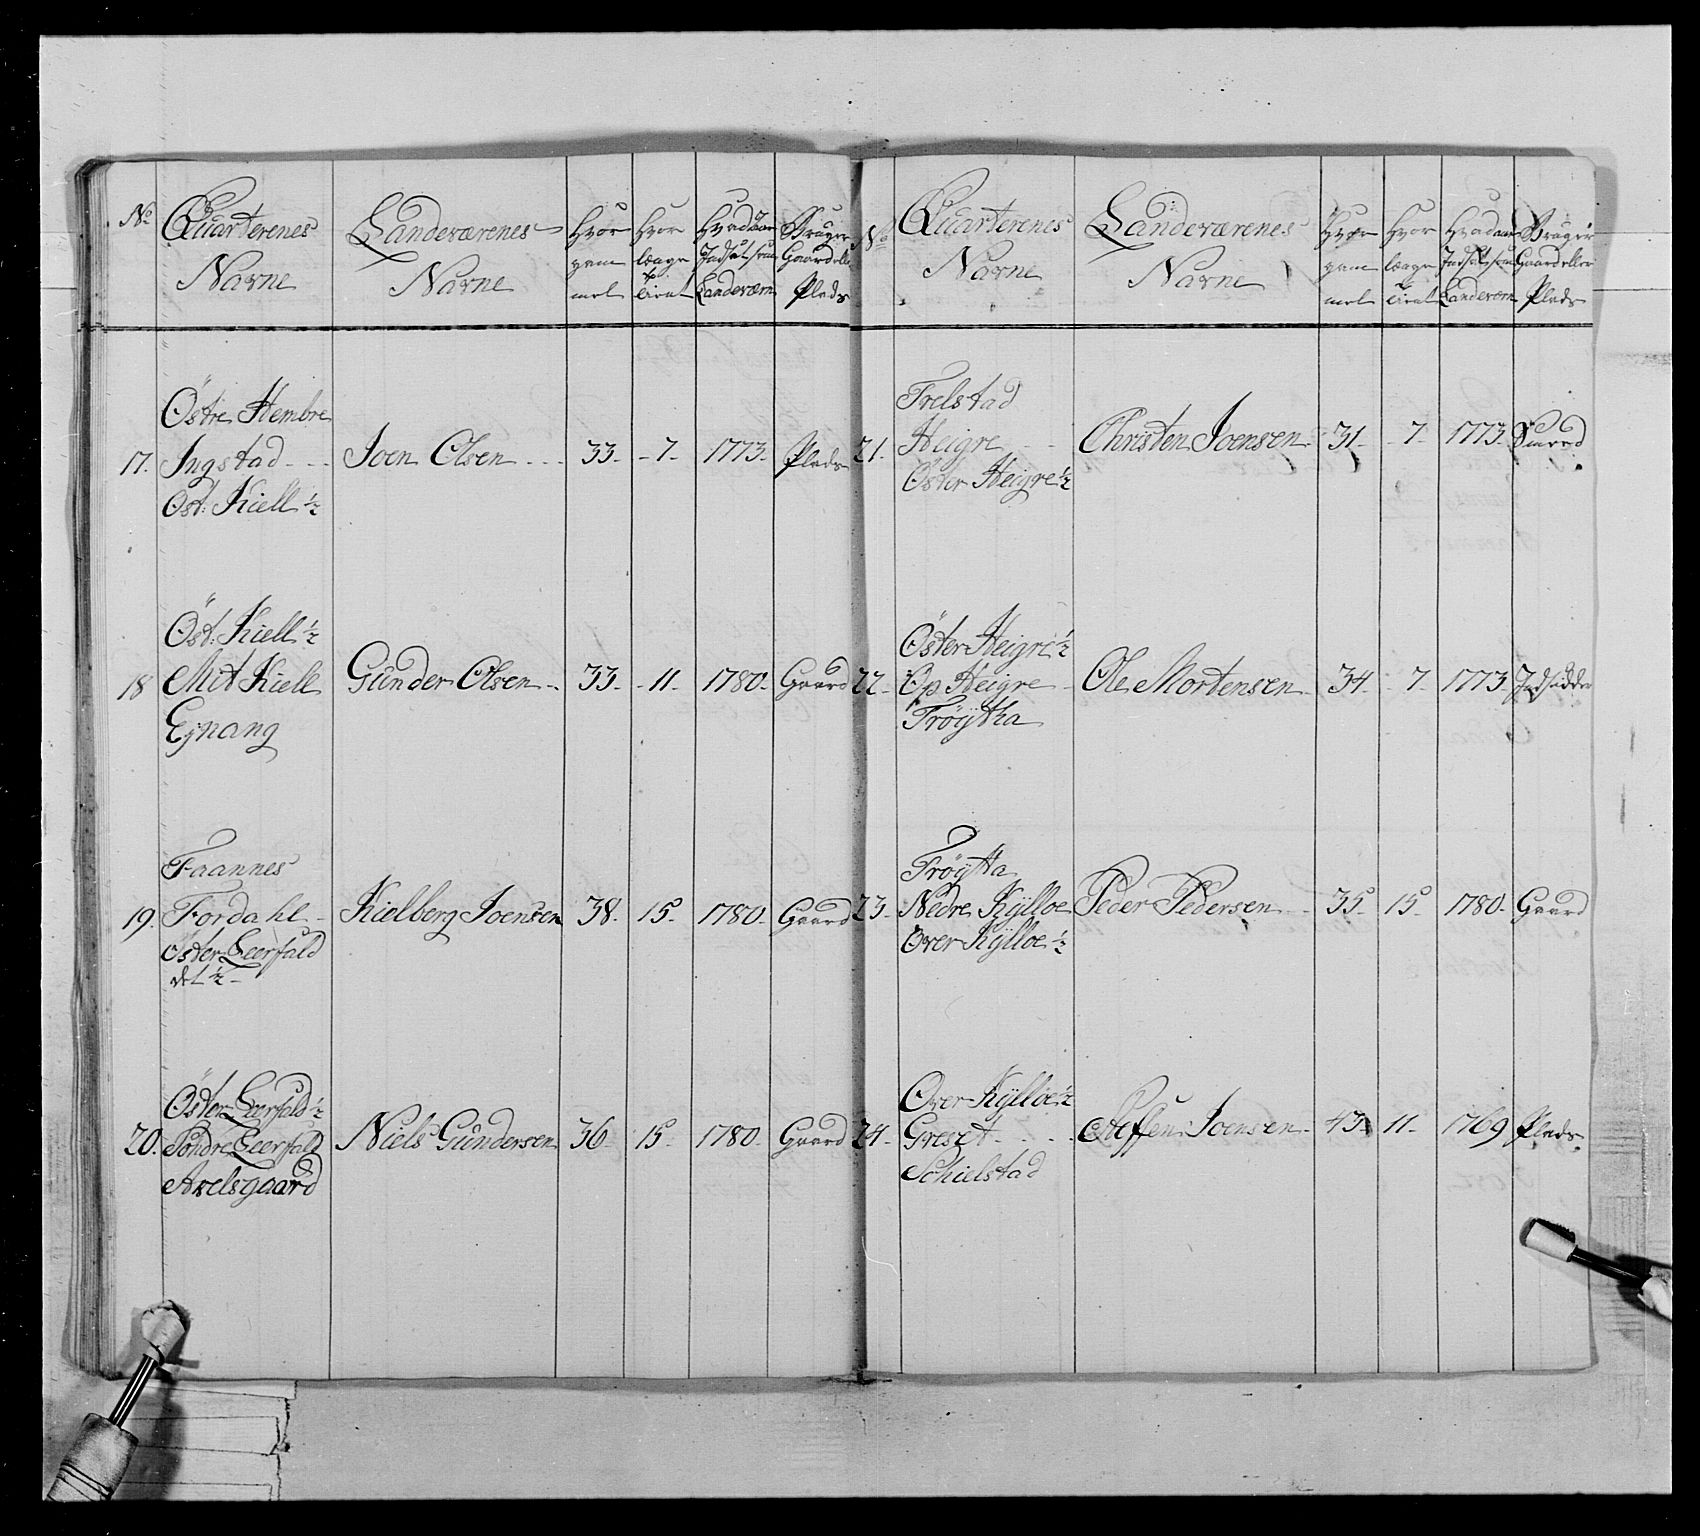 No
Quarterenes
Navne
Landeværenes
Navne
Hvor
gam
mel
Hvor
længe
tient
Hvad aar
Indsat som
Landeværn
Bruger
Gaard eller
Plads
17.
Östre Hembre
Ingstad
Öst: Kiell ½
Joen Olsen
33.
7.
1773.
Plads
18
Öst: Kiell ½
Mit Kiell
Ejnang
Gunder Olsen
33.
11.
1780.
Gaard
19.
Faannes
Fordahl
Öster Leerfald
det ½
Kielberg Joensen
38.
15.
1780.
Gaard
20.
Öster Leerfald ½
Söndre Leerfald
Axelsgaard
Niels Gundersen
36
15.
1780.
Gaard
No
Quarterenes
Navne
Landeværenes
Navne
Hvor
gam
mel
Hvor
længe
tient
Hvad aar
Indsat som
Landeværn
Bruger
Gaard eller
Plads
21.
Trelstad
Heigre
Öster Heigre ½
Christen Joensen
31.
7.
1773.
22.
Öster Heigre ½
Op Heigre
Tröÿtha
Ole Mortensen
34.
7.
1773.
Indsidder
23.
Tröÿtha
Nedre Kÿlloe
Over Kÿlloe ½
Peder Pedersen
35
15
1780.
Gaard
24.
Over Kÿlloe ½
Greset
Schielstad
Steffen Joensen
43
11.
1769
Plads.